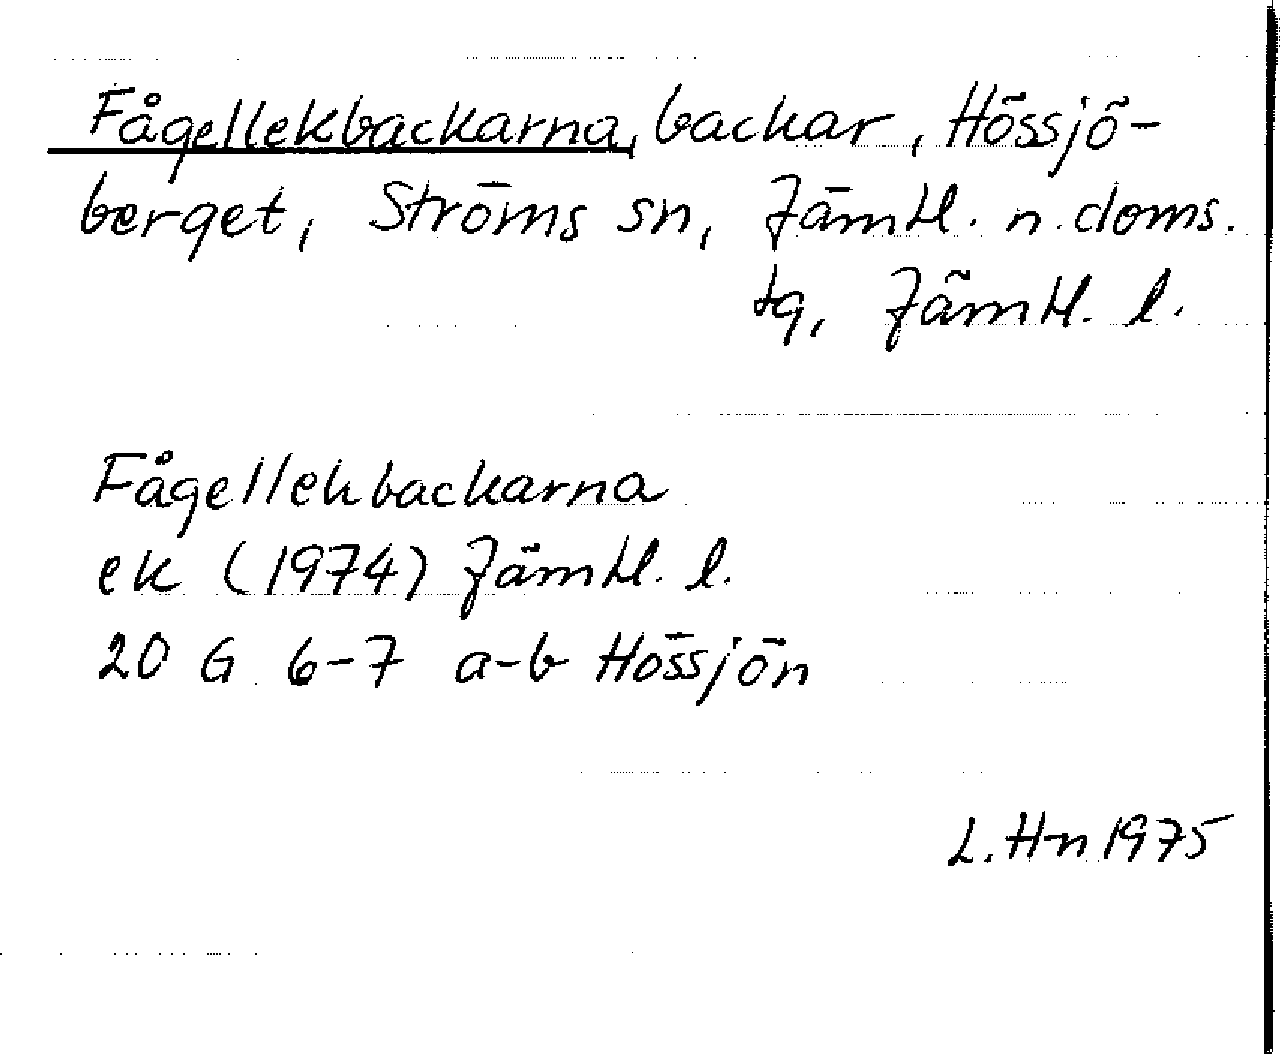 Fågellekbackarna, backar, Hössjö-
berget, Ströms sn, Jämtl. n. doms.
tg, Jämtl. l.
Fågellekbackarna
ek (1974) Jämtl. l.
20 G 6-7 a-b Hössjön
L. Hn 1975